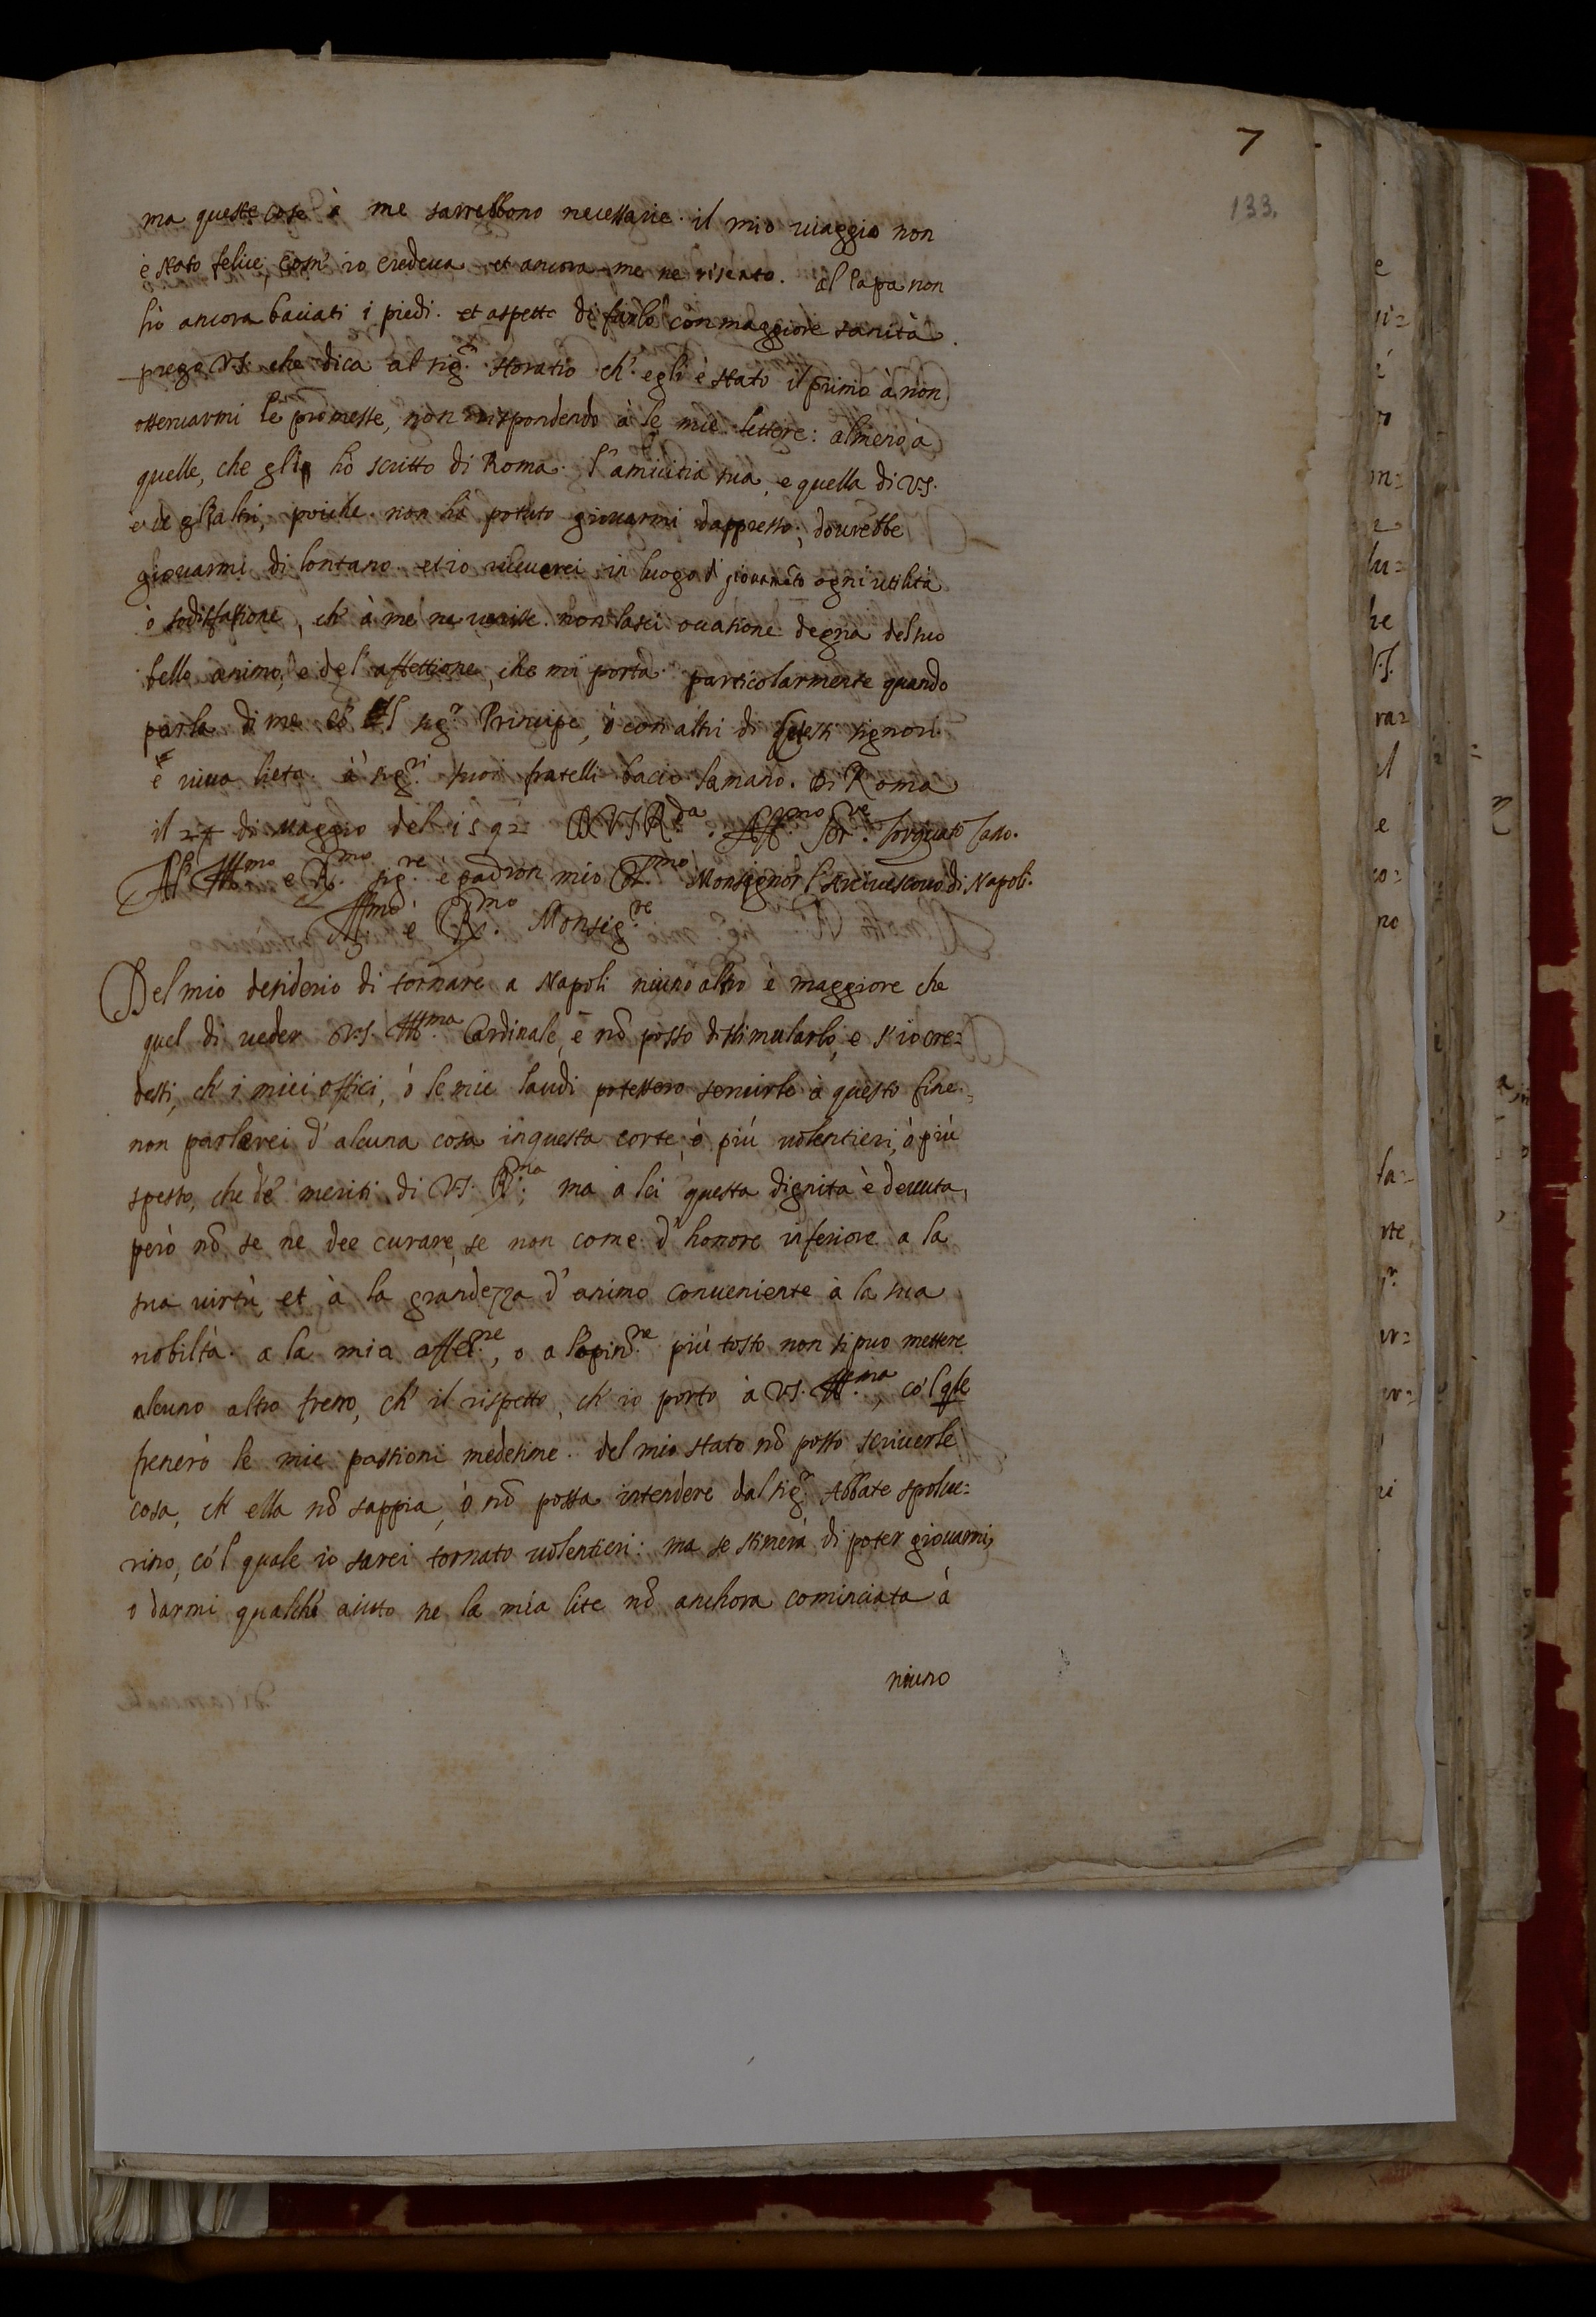 7
133.
ma queste cose à me sarrebbono necessarie. il mio uiaggio non
è stato felice, com' io credeua et ancora me ne risento. Al Papa non
hò ancora baciati i piedi. et aspetto di farlo con maggiore sanità.
prego V.S. che dica al sig.r Horatio ch' egli è stato il primo à non
osseruarmi le promesse, non rispondendo à le mie lettere: almeno à
quelle, che gli hò scritto di Roma. l'amicitia sua, e quella di V.S.
e de gli altri, poiche non hà potuto giouarmi dappresso, dourebbe
giouarmi di lontano. et io riceuerei in luogo di giouamēto ogni utilità
ò sodisfasione, ch' à me ne uenisse. non lasci occasione degna del suo
bello animo, e del' affettione, che mi porta. particolarmente quando
parla di me cō 'l sig.r Principe, ò con altri di questi signori.
e uiua lieta. à sig.ri suoi fratelli bacio la mano. Di Roma
il 24 di Maggio del 1592 D V S R.da Aff.mo Ser.re Torquato Tasso.
Al' Ill.mo e R.mo sig.re e padron mio Col.mo Monsignor l'Arciuescouo di Napoli.
Ill.mo e R.mo Monsig.re
Del mio desiderio di tornare a Napoli niuno altro è maggiore che
quel di ueder V.S. Ill.ma Cardinale, e nō posso dissimularlo, e s'io cre=
dessi, ch' i miei offici, ò le mie laudi potessero seruirle à questo fine,
non parlerei d' alcuna cosa in questa corte, ò più uolentieri, ò più
spesso, che de' meriti di V.S. R.ma; ma a lei questa dignita è deuuta,
però nō se ne dee curare, se non come d' honore inferiore a la
sua uirtù et à la grandezza d' animo conueniente à la sua
nobiltà. a la mia affet.ne, o a l'opin.ne più tosto non si puo mettere
alcuno altro freno, ch' il rispetto, ch' io porto à V.S. Ill.ma, co 'l qle
frenerò le mie passioni medesime. del mio stato nō posso scriuerle
cosa, ch' ella nō sappia, ò nō possa intendere dal sig.r Abbate spolue=
rino, cò 'l quale io sarei tornato uolentieri: ma se stimerà di poter giouarmi,
o darmi qualche aiuto ne la mia lite nō anchora cominciata à
niuno